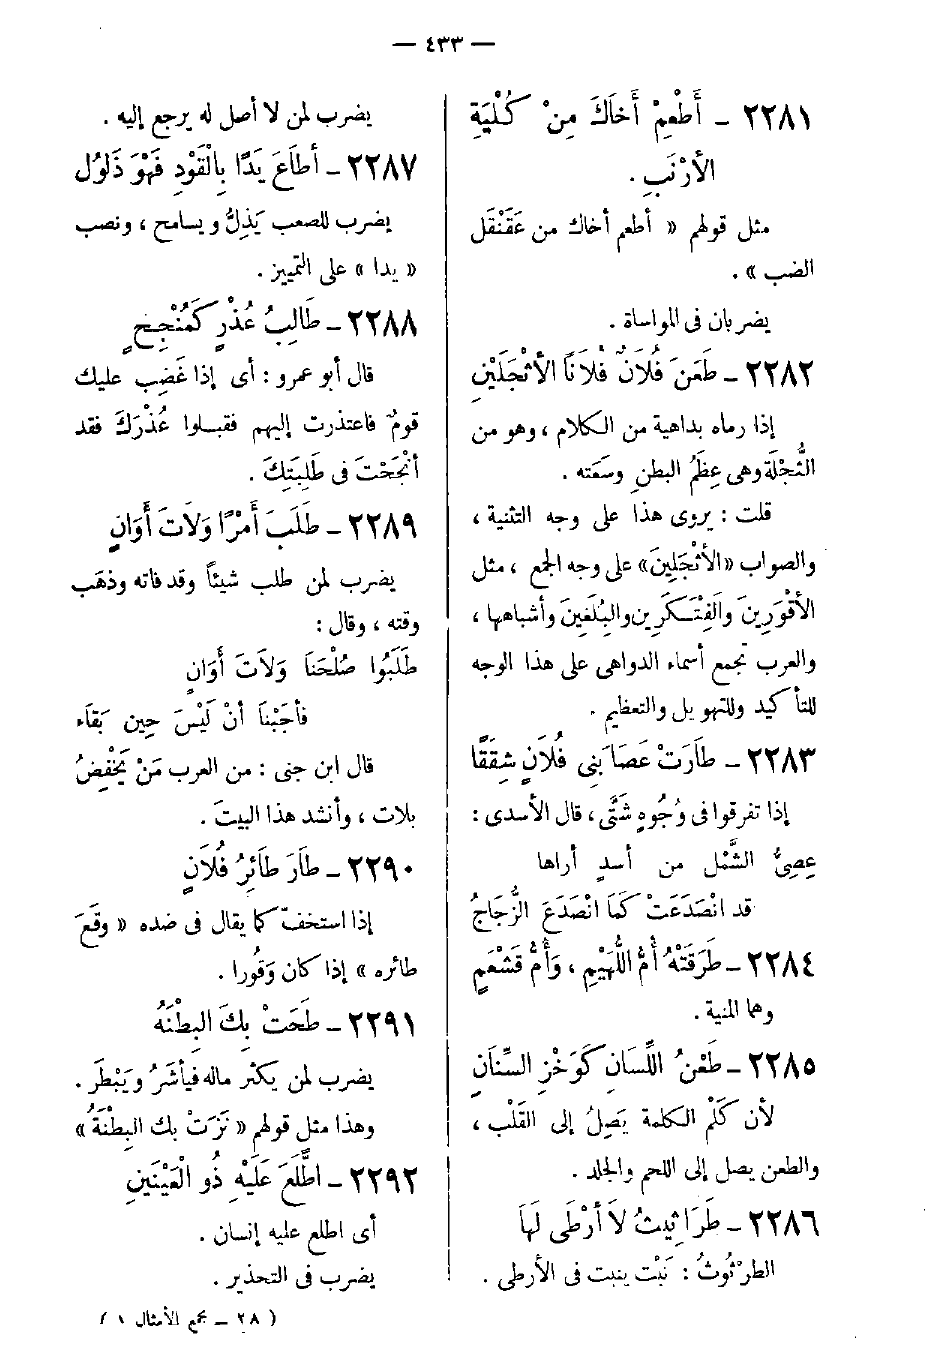 — ٤٣٣ —
٢٢٨١ – أَطْعِمْ أَخَاكَ مِنْ كُلْيَةِ
الأرْنَبِ .
مثل قولهم « أطعم أخاك من عَقَنْقَل
الضب » .
يضربان فى المواساة .
٢٢٨٢ – طَعَنَ فُلَانٌ فُلَانًا الأَثْجَلَيْنِ
إذا رماه بداهية من الكلام ، وهو من
الثُّجْلَة وهى عِظَمُ البطنِ وسَعَته .
قلت : يروى هذا على وجه التثنية ،
والصواب «الأَثْجَلِينَ» على وجه الجمع ، مثل
الأقْوَرِينَ والْفِتَكْرِينَ والبُلَغِينَ وأشباهها ،
والعرب تجمع أسماء الدواهى على هذا الوجه
للتأكيد وللتهويل والتعظيم .
٢٢٨٣ – طَارَتْ عَصَا بَنِى فُلَانٍ شِقَقًا
إذا تفرقوا فى وُجُوهٍ شَتَّى ، قال الأسدى :
عِصِىُّ الشَّمْل من أسدٍ أراها
قد انْصَدَعَتْ كَمَا انْصَدَعَ الزُّجَاجُ
٢٢٨٤ – طَرَقَتْهُ أُمُّ اللُّهَيْمِ ، وَأُمُّ قَشْعَمٍ
وهما المنية .
٢٢٨٥ – طَعْنُ اللِّسَانِ كَوَخْزِ السِّنَانِ
لأن كَلْمَ الكلمة يَصِلُ إلى القَلْب ،
والطعن يصل إلى اللحم والجلد .
٢٢٨٦ – طَرَاثِيثُ لاَ أَرْطَى لَهَا
الطرْثُوثُ : نَبْت ينبت فى الأرطى .
يضرب لمن لا أصل له يرجع إليه .
٢٢٨٧ – أطَاعَ يَدًا بِالْقَوْدِ فَهْوَ ذَلُولُ
يضرب للصعب يَذِلُّ ويسامح ، ونصب
« يدا » على التمييز .
٢٢٨٨ – طَالِبُ عُذْرٍ كَمُنْجِحٍ
قال أبو عمرو : أى إذا غَضِبَ عليك
قومٌ فاعتذرت إليهم فقبلوا عُذْرَكَ فقد
أنْجَحْتَ فى طَلِبَتِكَ .
٢٢٨٩ – طَلَبَ أَمْرًا وَلاَتَ أَوَانٍ
يضرب لمن طلب شيئًا وقد فاته وذهَب
وقته ، وقال :
طَلَبُوا صُلْحَنَا وَلاَتَ أَوَانٍ
فأَجَبْنَا أنْ لَيْسَ حِين بَقَاء
قال ابن جنى : من العرب مَنْ يَخْفِضُ
بلات ، وأنشد هذا البيتَ .
٢٢٩٠ – طَارَ طَائِرُ فُلَانٍ
إذا استخفّ كما يقال فى ضده « وقَعَ
طائره » إذا كان وَقُورا .
٢٢٩١ – طَحَتْ بِكَ البِطْنَةُ
يضرب لمن يكثر ماله فيأشَرُ ويَبْطَر .
وهذا مثل قولهم « نَزَتْ بك البِطْنَةُ »
٢٢٩٢ – اطَّلَعَ عَلَيْهِ ذُو الْعَيْنَيْنِ
أى اطلع عليه إنسان .
يضرب فى التحذير .
( ٢٨ – مجمع الأمثال ١ )